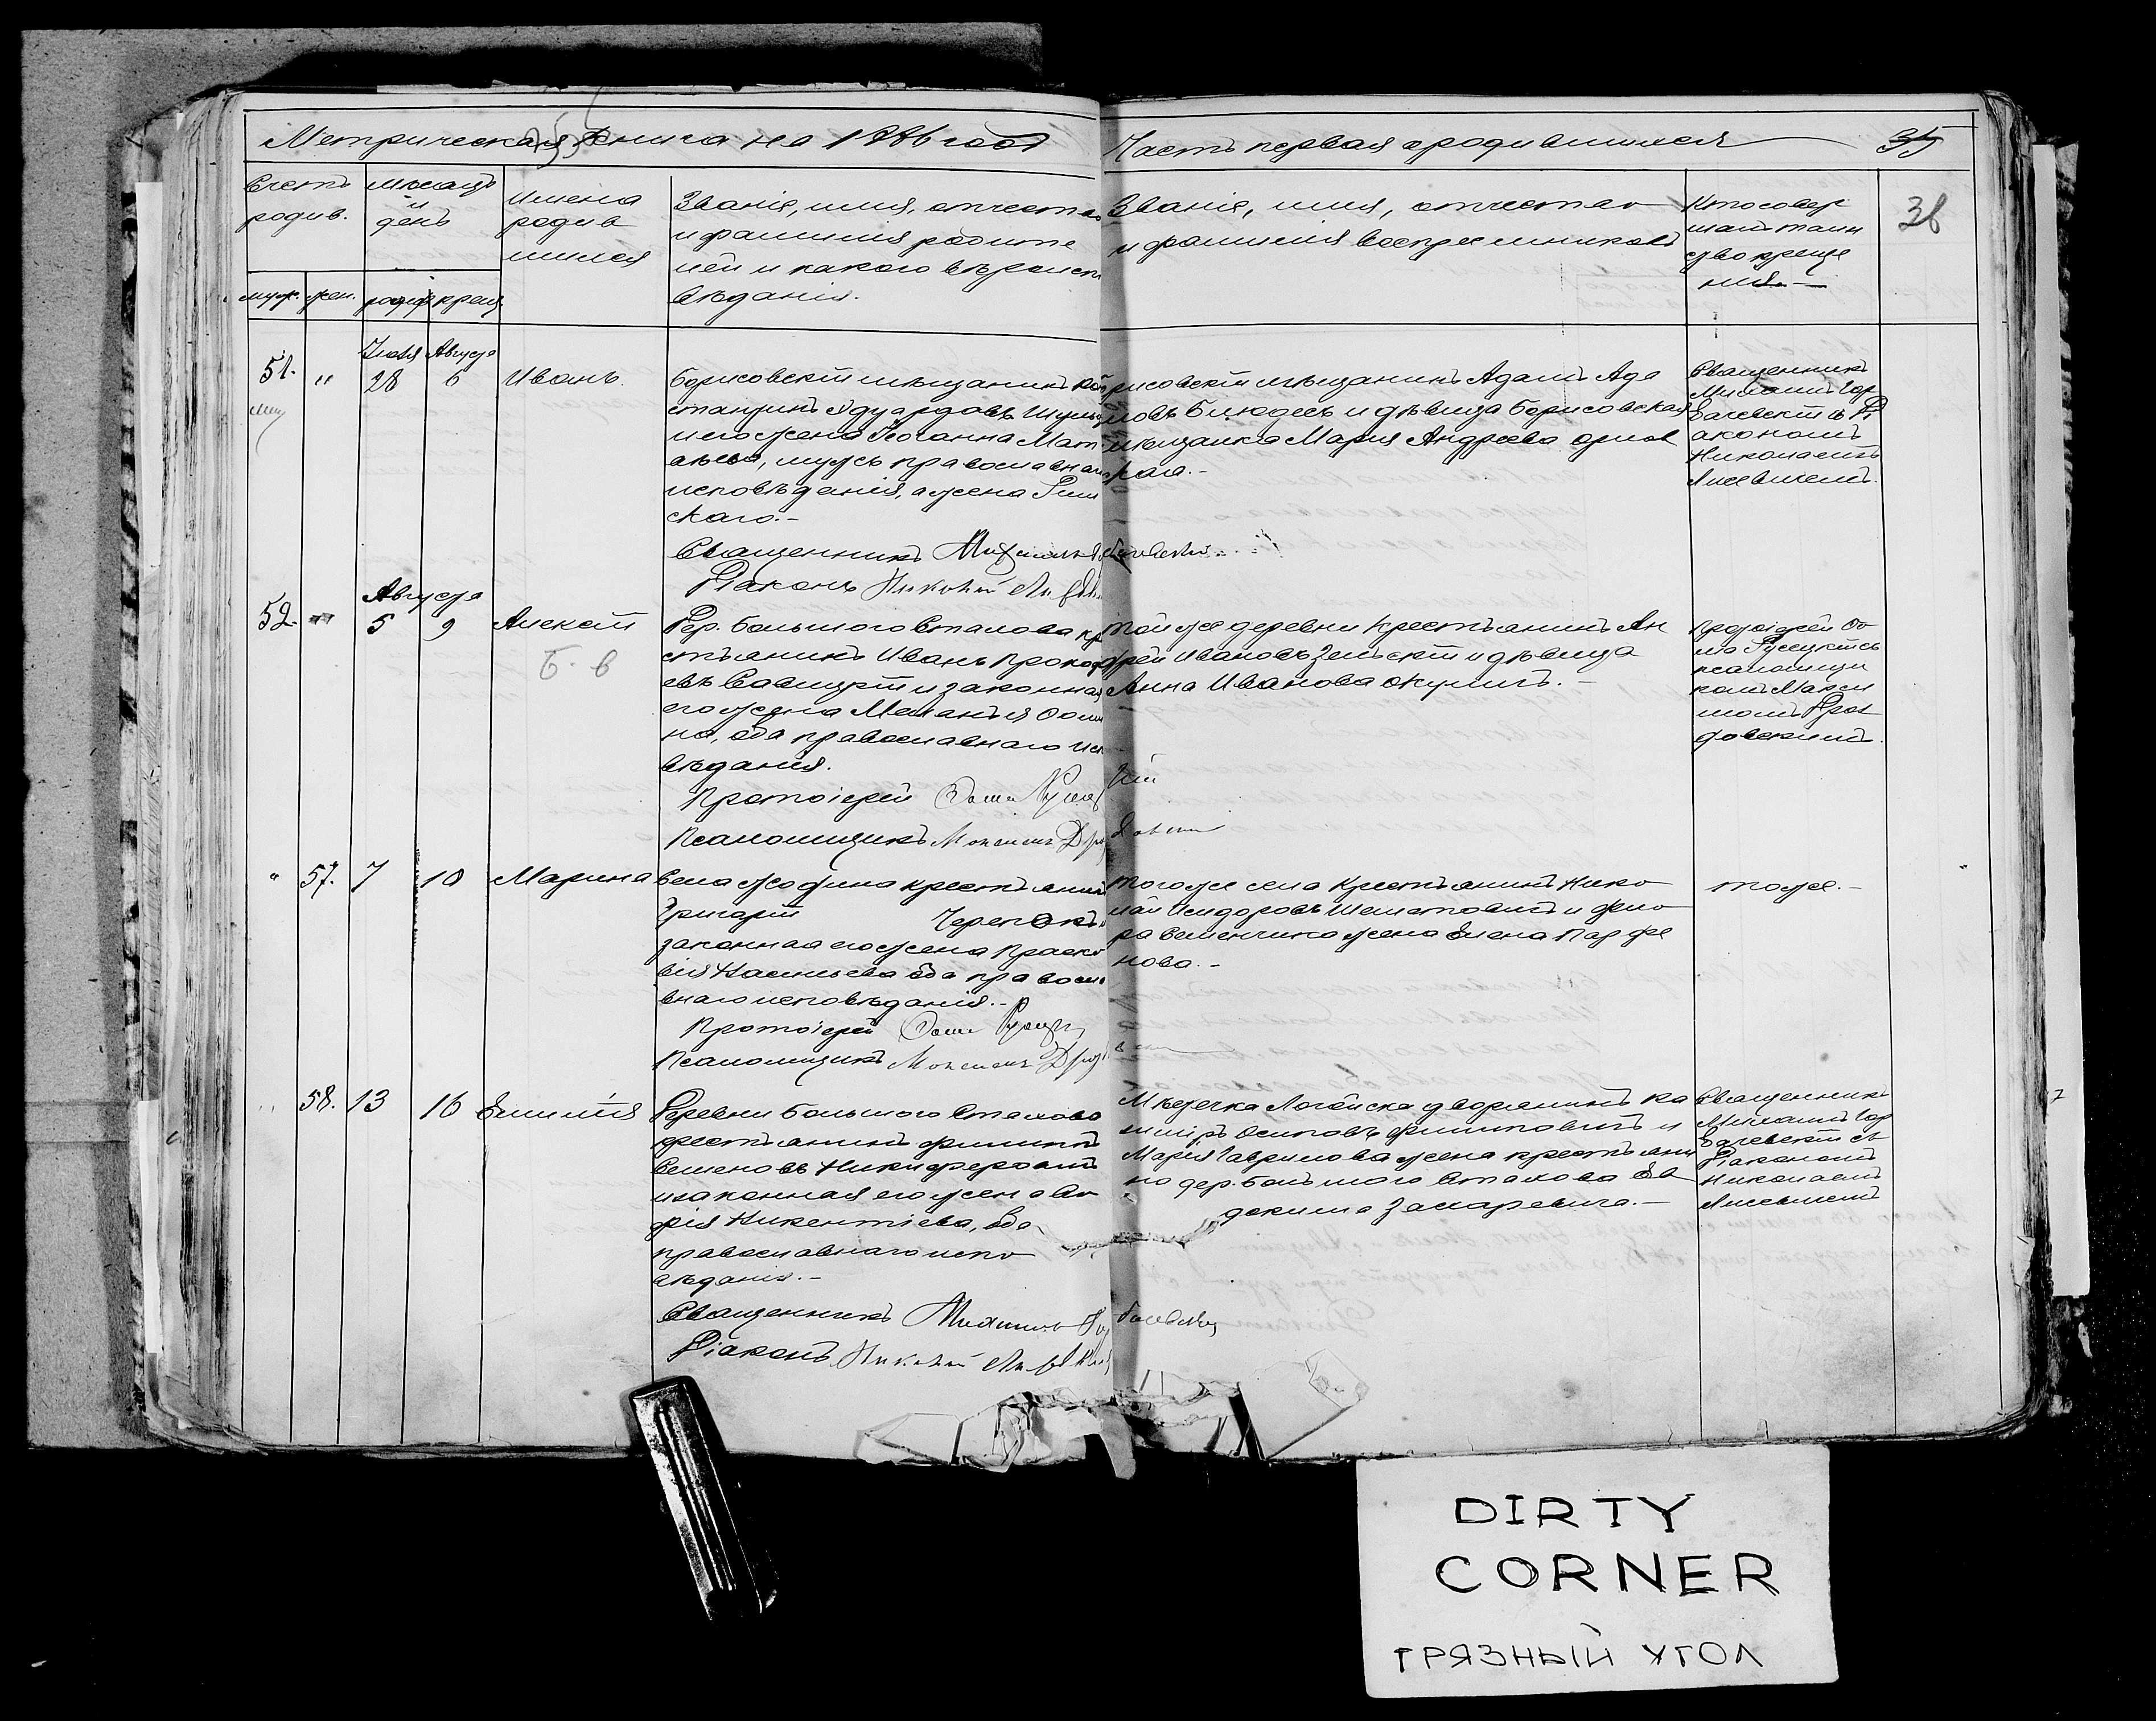 Метрическая книга на 1886 годъ
Часть первая о родившихся
35
38
Счетъ родив.
муж. жен.
Мѣсяцъ и день
рожд. крещ.
Имена
родив
шихся
Званіе, имя, отчество
и фамилія родите
лей и какого вѣроиспо
вѣданія.
Званіе, имя, отчество
и фамилія воспріемниковъ
Кто совер
шалъ таин
ство креще
нія.
51. " Іюля 28 Августа 6 Иванъ.
Борисовскій мѣщанинъ Кон
стантинъ Эдуардовъ
и его жена Іоганна Мат
вѣева, мужъ православнаго
исповѣданія, а жена Рим
скаго.-
Священникъ Михаилъ
Діаконъ Николай
Борисовскій мѣщанинъ Адамъ Ада
мовъ и дѣвица Борисовская
мѣщанка Марія Андреева Орлов
ская.-
Священникъ
Михаилъ Гор
бачевскій съ Ді
акономъ
Николаемъ
52. " Августа 5 9 Алексѣй
Б. в
Дер. Большого Стахова кре
стьянинъ Иванъ Прокофь
евъ Савицкій и законная
его жена Меланья Ѳоми
на, оба православнаго испо
вѣданія.
Протоіерей Ѳома
Псаломщикъ Максимъ
Той же деревни крестьянинъ Ан
дрей Ивановъ и дѣвица
Анна Иванова Окуличъ.-
Протоіерей Ѳо
ма съ
псаломщи
комъ Макси
момъ Дроз
довскимъ.
" 57. 7 10 Марина
Села Жодина крестьянинъ
Григорій Черепокъ и
законная его жена Праско
вія Васильева оба правосла
внаго исповѣданія.-
Протоіерей Ѳома
Псаломщикъ Максимъ
Того же села крестьянинъ Нико
лай Исидоровъ Шеметовичъ и Фло
ра Семенчика жена Елена Парфе
нова.-
тоже.-
" 58. 13 16 Емилія
Деревни Большого Стахова
крестьянинъ Филиппъ
Семеновъ Никифоровичъ
и законная его жена Со
фія Викентіева, оба
православнаго испо
вѣданія.-
Священникъ Михаилъ
Діаконъ Николай
Мѣстечка Логойска дворянинъ Ка
зиміръ Осиповъ Филиповичъ и
Марія Гаврилова жена крестьяни
на дер. Большого Стахова Ев
докима Захаревича.-
Священникъ
Михаилъ Гор
бачевскій съ
Діакономъ
Николаемъ
DIRTY
CORNER
ГРЯЗНЫЙ УГОЛ